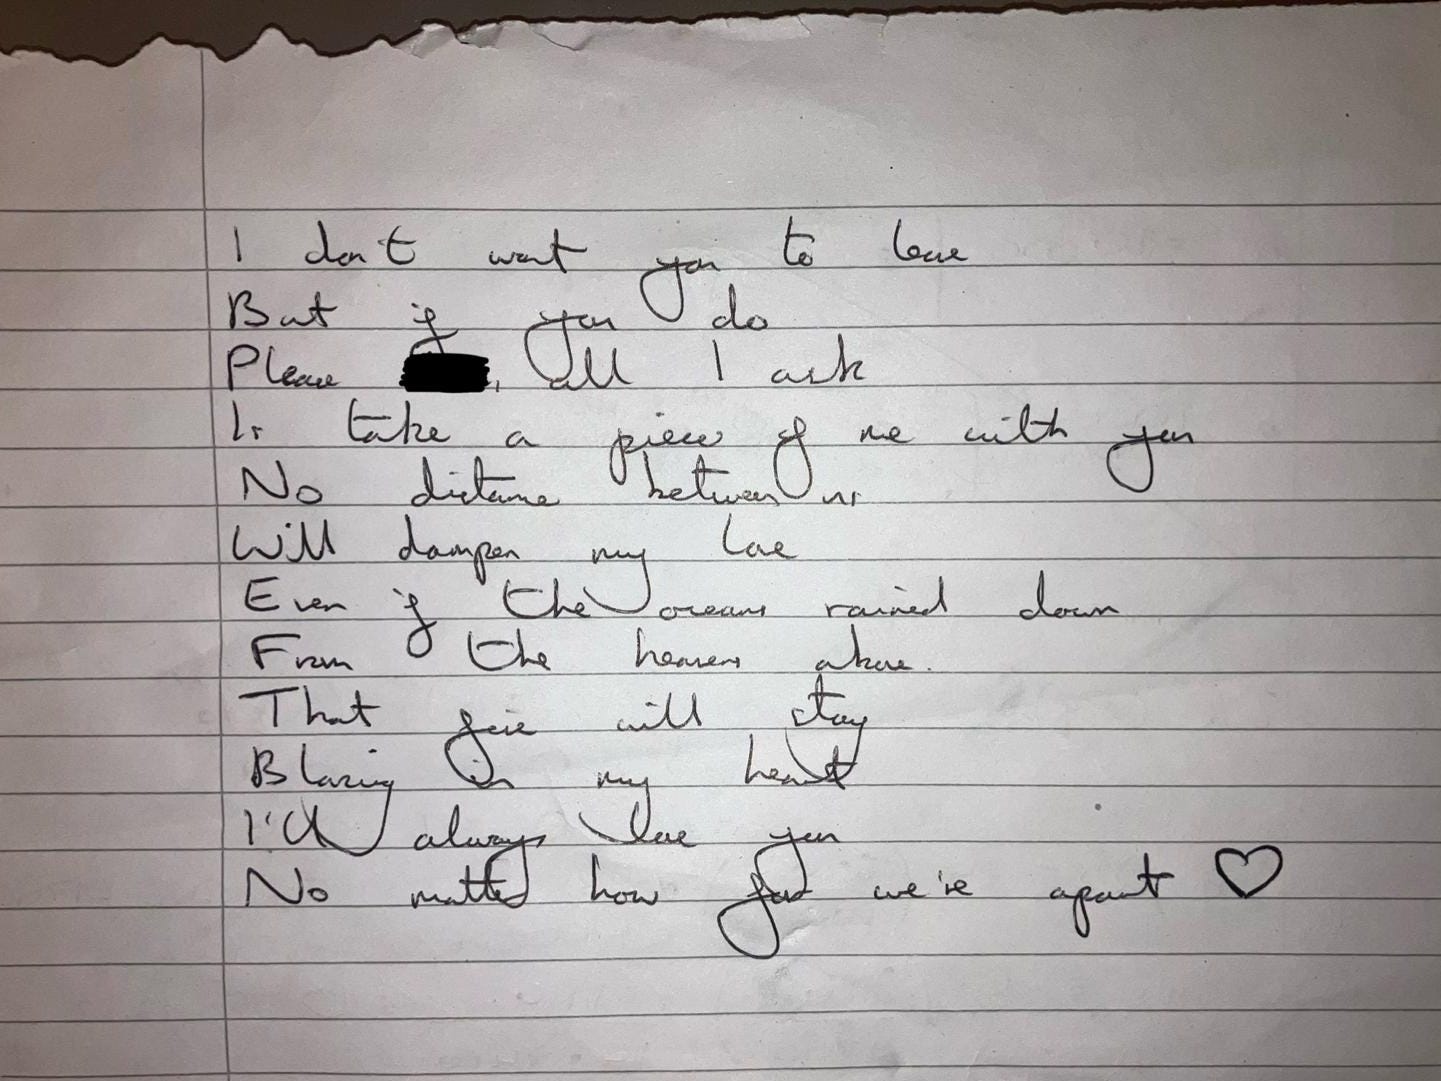 I don't want you to leave
But if you do
Please , all I ask
Is take a piece of me with you
No distance between us
Will dampen my love
Even if the oceans rained down
From the heavens above.
That fire will stay
Blazing in my heart
I'll always love you
No matter how far we're apart ♡